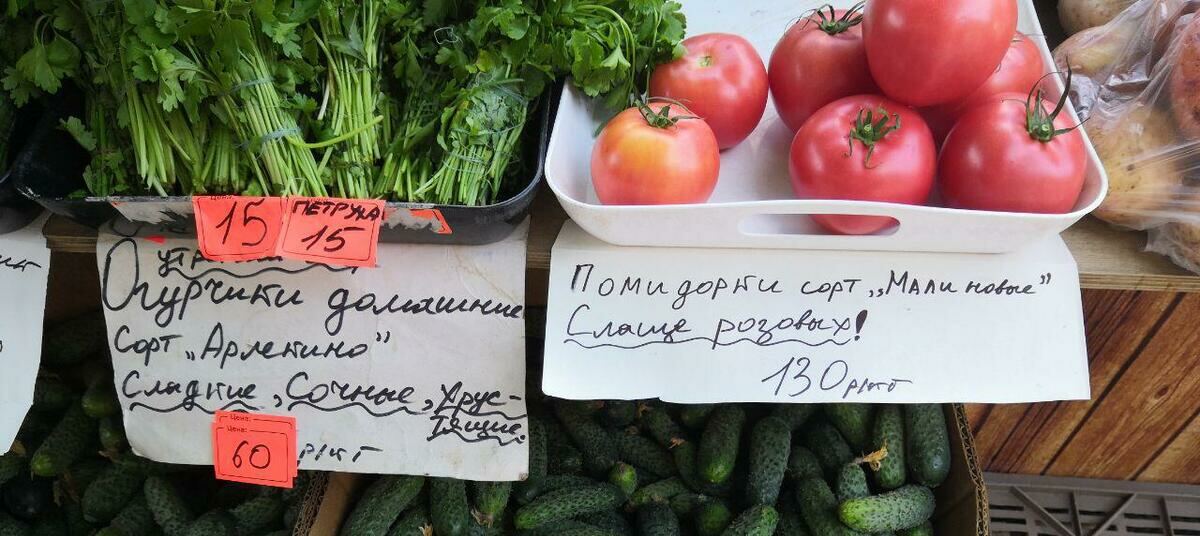 Цена:
15
ПЕТРУХА
15
Огурчики домашние
Сорт „Арлекино”
Сладкие, Сочные, Хрус-
тящие.
Цена:
Цена:
60
р/кг
Помидорки сорт „Малиновые”
Слаще розовых!
130 р/кг